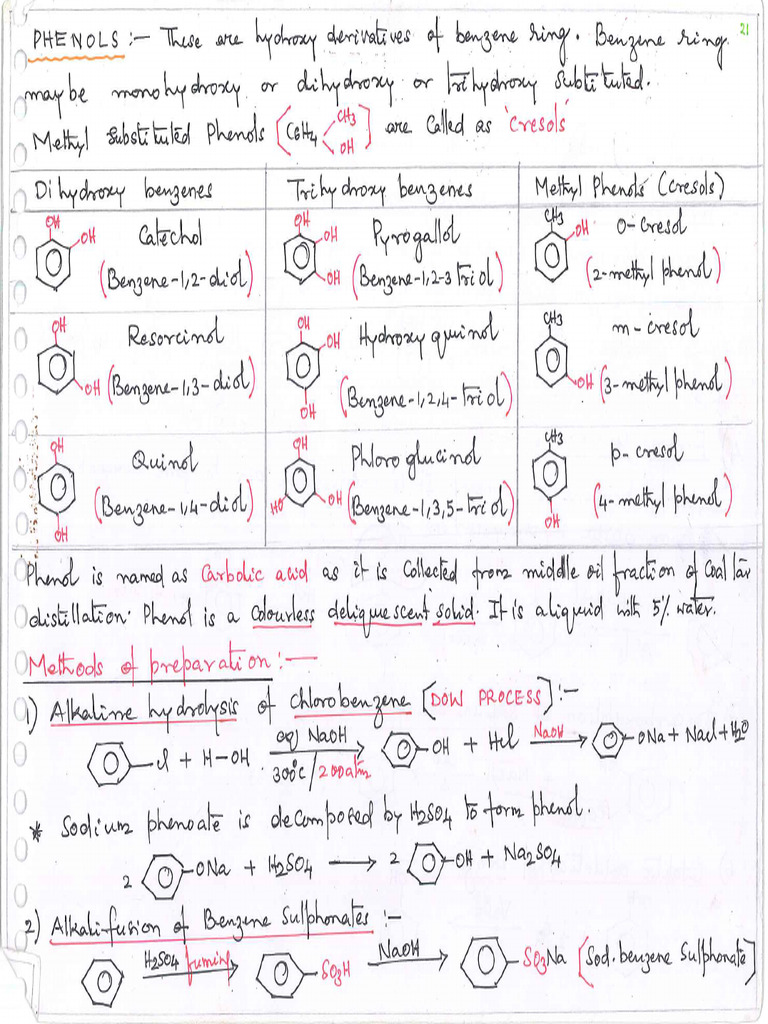 21
PHENOLS :— These are hydroxy derivatives of benzene ring. Benzene ring
may be monohydroxy or dihydroxy or trihydroxy substituted.
Methyl substituted Phenols [C6H4 < CH3 OH] are called as 'cresols'
Dihydroxy benzenes Trihydroxy benzenes Methyl Phenols (cresols)
OH OH Catechol OH OH OH Pyrogallol CH3 OH O-cresol
(Benzene-1,2-diol) (Benzene-1,2-3 triol) (2-methyl phenol)
OH OH Resorcinol OH OH OH Hydroxy quinol CH3 OH m-cresol
(Benzene-1,3-diol) (Benzene-1,2,4-Triol) (3-methyl phenol)
OH OH Quinol OH HO OH Phloro glucinol CH3 OH p-cresol
(Benzene-1,4-diol) (Benzene-1,3,5-triol) (4-methyl phenol)
Phenol is named as Carbolic acid as it is collected from middle oil fraction of Coal tar
distillation. Phenol is a colourless deliquescent solid. It is a liquid with 5% water.
Methods of preparation :—
1) Alkaline hydrolysis of Chlorobenzene [DOW PROCESS] :—
Cl + H-OH aq NaOH 300°C/200atm → OH + HCl NaOH → ONa + NaCl + H2O
* Sodium phenoate is decomposed by H2SO4 to form phenol.
2 ONa + H2SO4 → 2 OH + Na2SO4
2) Alkali-fusion of Benzene Sulphonates :—
H2SO4 fuming → SO3H NaOH → SO3Na [Sod. benzene Sulphonate]